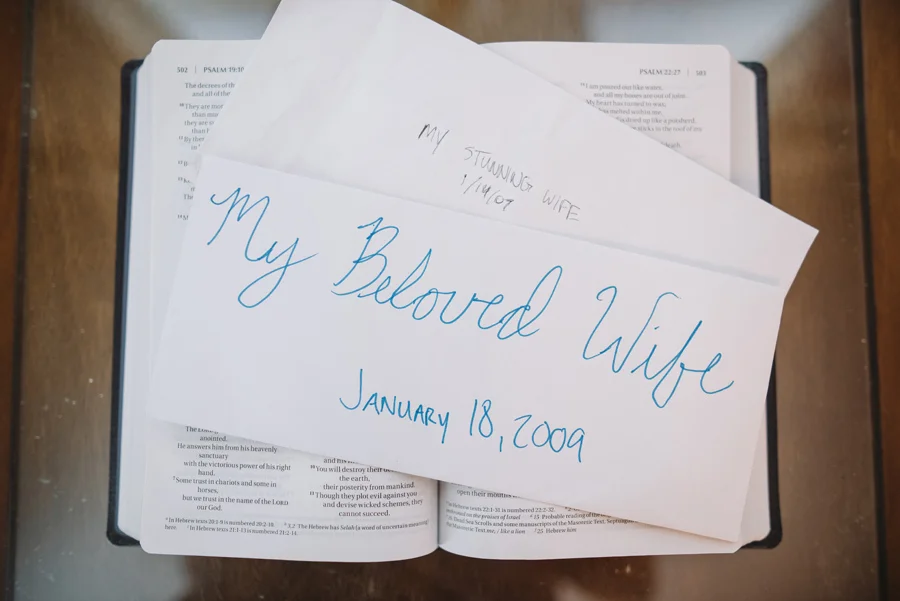 502 | PSALM 19:10
The decrees of
and all of the
They are
than
they are
than
By
The
PSALM 22:27 | 503
I am poured out like water,
and all my bones are out of joint.
heart has turned to wax;
melted within me.
dried up like a potsherd,
sticks to the roof of my
MY STUNNING WIFE
1/14/09
My Beloved Wife
January 18, 2009
The
anointed.
He answers him from his heavenly
sanctuary
with the victorious power of his right
hand.
Some trust in chariots and some in
horses,
but we trust in the name of the LORD
our God.
and his
You will destroy their
the earth,
their posterity from mankind.
Though they plot evil against you
and devise wicked schemes, they
cannot succeed.
open their mouths
In Hebrew texts 20:1-9 is numbered 20:2-10.
The Hebrew has Selah (a word of uncertain meaning)
here.
In Hebrew texts 21:1-13 is numbered 21:2-14.
In Hebrew texts 22:1-31 is numbered 22:2-32.
the praises of Israel
Probable reading of the
Dead Sea Scrolls and some manuscripts of the Masoretic Text,
Masoretic Text me, / like a lion
Hebrew him